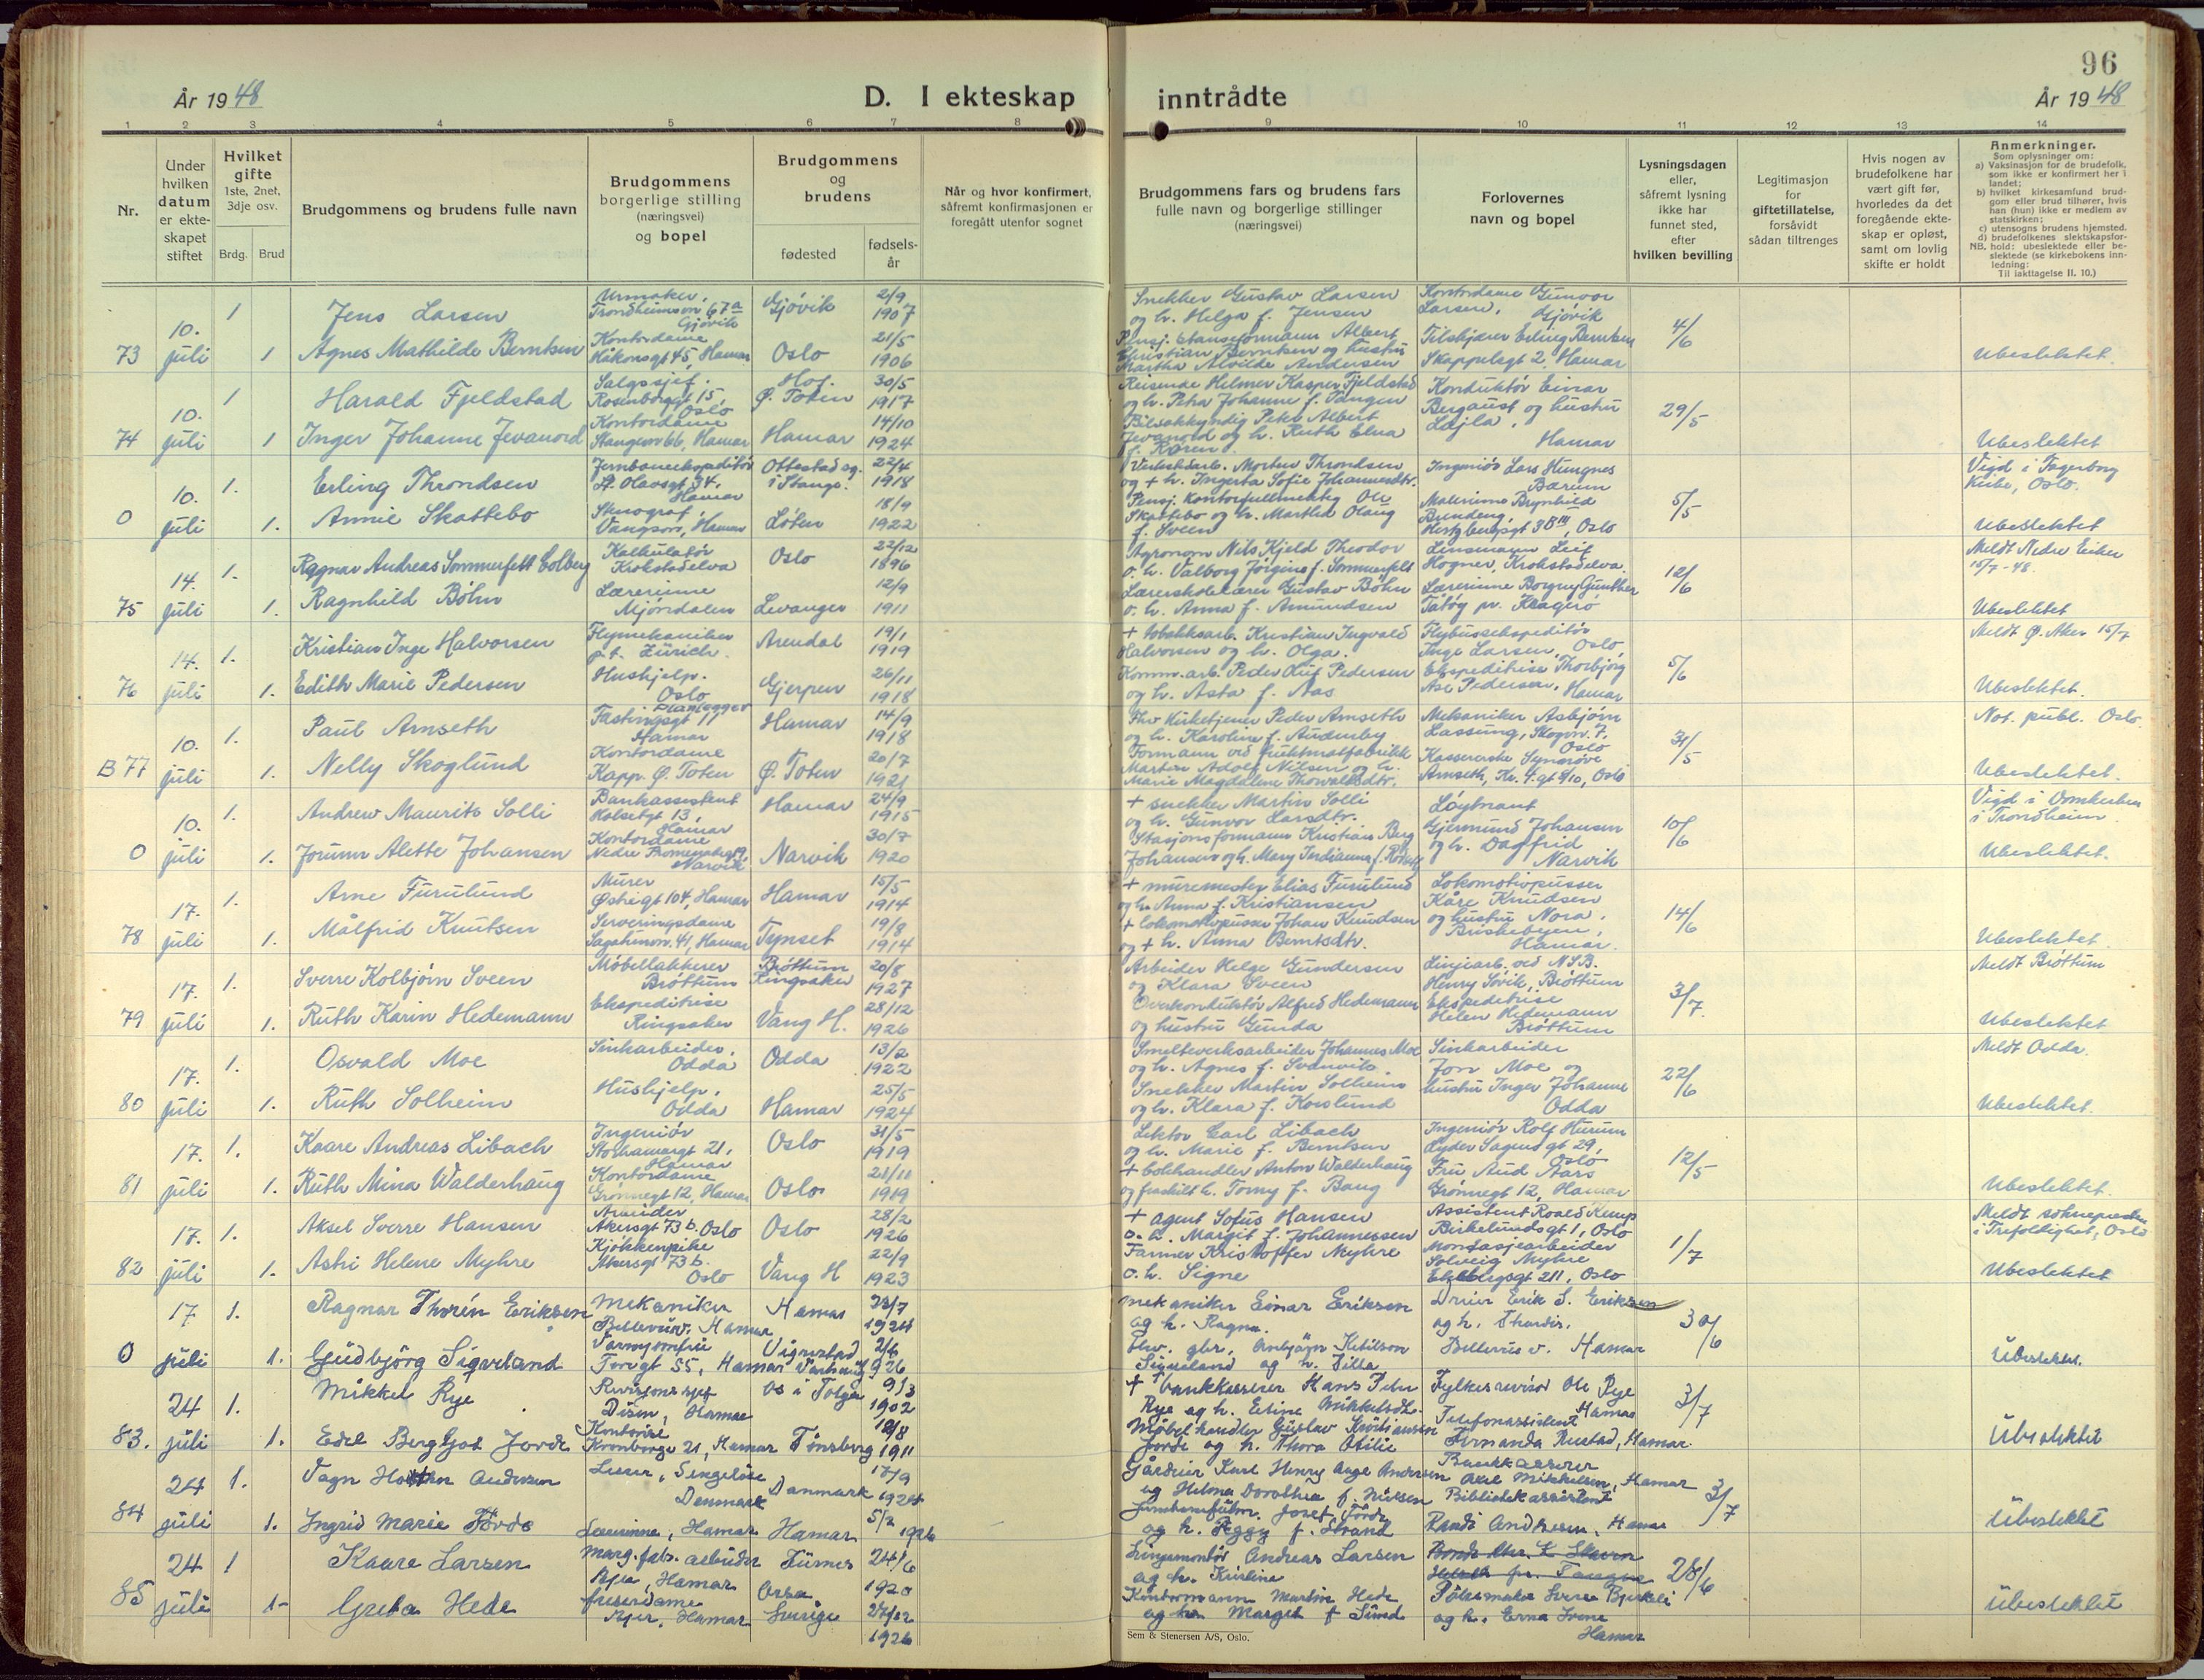 96
År 1948
D. I ekteskap inntrådte
År 1948
1 2 3 4 5 6 7 8 9 10 11 12 13 14
Nr.
Under hvilken datum er ekteskapet stiftet
Hvilket gifte 1ste, 2net, 3dje osv.
Brdg. Brud
Brudgommens og brudens fulle navn
Brudgommens borgerlige stilling (næringsvei) og bopel
Brudgommens og brudens
fødested
fødselsår
Når og hvor konfirmert, såfremt konfirmasjonen er foregått utenfor sognet
Brudgommens fars og brudens fars fulle navn og borgerlige stillinger (næringsvei)
Forlovernes navn og bopel
Lysningsdagen eller, såfremt lysning ikke har funnet sted, efter hvilken bevilling
Legitimasjon for giftetillatelse, forsåvidt sådan tiltrenges
Hvis nogen av brudefolkene har vært gift før, hvorledes da det foregående ekteskap er opløst, samt om lovlig skifte er holdt
Anmerkninger.
Som oplysninger om:
a) Vaksinasjon for de brudefolk, som ikke er konfirmert her i landet;
b) hvilket kirkesamfund brudgom eller brud tilhører, hvis han (hun) ikke er medlem av statskirken;
c) utensogns brudens hjemsted.
d) brudefolkenes slektskapsforhold: ubeslektede eller beslektede (se kirkebokens innledning:
NB.
Til iakttagelse II. 10.)
73 10. juli 1 Jens Larsen Urmaker, Trondheimsvn 67a Gjøvik Gjøvik 2/9 1907
Snekker Gustav Larsen og h. Helga f. Jensen Kontordame Gunvor Larsen, Gjøvik 4/6
1 Agnes Mathilde Berntsen Kontordame Håkonsgt 45, Hamar Oslo 21/5 1906
Pensj. Stanseformann Albert Christian Berntsen og hustru Martha Alvilde Andersen Erling Berntsen Skappelsgt 2, Hamar Ubeslektet.
74 10. juli 1 Harald Fjeldstad Salgssjef. Rosenborggt 15, Oslo Hof. Ø. Toten 30/5 1917
Reisende Helmer Kasper Fjeldstad og h. Petra Johanne f. Tangen Konduktør Einar Bergaust og hustru Lajla, Hamar 29/5
1 Inger Johanne Jevanord Kontordame Stangevn 66, Hamar Hamar 14/10 1924
Bilsakkyndig Peter Albert Jevanord og h. Ruth Elna f. Karen Ubeslektet
0 10. juli 1. Erling Throndsen Jernbaneekspeditør St. Olavsgt 34, Hamar Ottestad sg. i Stange. 22/4 1918
Verkstedarb. Morten Throndsen og + h. Ingerta Sofie Johannesdtr. Ingeniør Lars Hungnes Bærum 5/5 Vigd i Fagerborg kirke, Oslo.
1. Annie Skattebo Stenograf, Vangsvn, Hamar Løten 18/9 1922
Pensj. Kontorfullmektig Ole Skattebo og h. Martha Olaug f. Sveen Malerinne Brynhild Hertzbergsgt 3 B III, Oslo Ubeslektet
75 14. juli 1. Ragnar Andreas Sommerfelt Colberg Kalkulatør Krokstadelva Oslo 22/12 1896
Agronom Nils Kjeld Theodor o. h. Valborg Jørgine f. Sommerfeldt Lensmann Leif Hogner, Krokstadelva 12/6 Meldt Nedre Eiker 15/7-48.
1. Ragnhild Bøhn Lærerinne Mjøndalen Levanger 12/9 1911
Lærerskolelærer Gustav Bøhn o. h. Anna f. Amundsen Lærerinne Borgny Günther Tåtøy pr. Kragerø Ubeslektet
76 14. juli 1. Kristian Inge Halvorsen Flymekaniker p.t. Zürich. Arendal 19/1 1919
+ tobakksarb. Kristian Ingvald Halvorsen og h. Olga. Flybussekspeditør Inge Larsen, Oslo, 5/6 Meldt Ø. Aker 15/7
1. Edith Marie Pedersen Hushjelp. Oslo Gjerpen 26/11 1918
Komm.arb. Peder Leif Pedersen og h. Asta f. Aas Ekspeditrise Thorbjørg Ase Pedersen, Hamar Ubeslektet.
B 77 10. juli 1. Paul Amseth Planlegger Fastingsgt 11 Hamar Hamar 14/9 1918
Fhv Kirketjener Peder Amseth og h. Karoline f. Audenby Mekaniker Asbjørn Lassung, Skogvn. 7, Oslo 31/5 Not. publ. Oslo
1. Nelly Skoglund Kontordame Kapp. Ø. Toten Ø. Toten 20/7 1921
Formann ved fruktmatfabrikk Marten Adolf Nilsen og h. Marie Magdalene Thorvaldsdtr. Kassererske Synnøve Amseth, Kr. 4. gt 9/10, Oslo Ubeslektet.
0 10. juli 1. Andrew Maurits Solli Bankassistent Holsetgt 13, Hamar Hamar 24/9 1915
+ snekker Martin Solli og h. Gunvor Larsdtr. Løytnant Gjermund Johansen og h. Dagfrid Narvik 10/6 Vigd i Domkirken i Trondheim.
1. Jorunn Alette Johansen Kontordame Nedre Promenadegt 9, Narvik Narvik 30/7 1920
Stasjonsformann Kristian Berg Johansen og h. Mary Ubeslektet.
78 17. juli 1. Arne Furulund Murer Østregt 104, Hamar Hamar 15/5 1914
+ muremester Elias Furulund og h. Anna f. Kristiansen Lokomotivpusser Kåre Knudsen og hustru Nora, Briskebyen, Hamar. 14/6
1. Målfrid Knutsen Serveringsdame Sagatunvn. 41, Hamar Tynset 19/8 1914
+ lokomotivpusser Johan Knudsen og + h. Anna Berntsdtr. Ubeslektet.
79 17. juli 1. Sverre Kolbjørn Sveen Møbellakkerer Brøttum Brøttum Ringsaker 20/8 1927
Arbeider Helge Gundersen og Klara Sveen Linjearb. ved NSB. Henry Søvik, Brøttum 3/7. Meldt Brøttum
1. Ruth Karin Hedemann Ekspeditrise Ringsaker Vang H. 28/12 1926
Overkonduktør Alfred Hedemann og hustru Gunda Ekspeditrise Helen Hedemann Brøttum Ubeslektet
80 17. juli 1. Osvald Moe Sinkarbeider, Odda Odda 13/2 1922
Smelteverksarbeider Johannes Moe og h. Agnes f. Svanvik. Sinkarbeider Jon Moe og hustru Inger Johanne Odda 22/6 Meldt Odda.
1. Ruth Solheim Hushjelp. Odda Hamar 25/5 1924
Snekker Martin Solheim og h. Klara f. Korslund Ubeslektet.
81 17. juli 1. Kaare Andreas Libach Ingeniør Storhamargt 21, Hamar Oslo 31/5 1919
Lektor Carl Libach og h. Marie f. Berntsen Ingeniør Rolf Hurum Lyder Sagens gt 29, Oslo 12/5
1. Ruth Mina Walderhaug Kontordame Grønnegt 12, Hamar Oslo 21/11 1919
+ bokhandler Anton Walderhaug og fraskilt h. Tomy f. Baug Fru Aud Aars Grønnegt 12, Hamar Ubeslektet.
82 17. juli 1. Aksel Sverre Hansen Arbeider Akersgt 73 b. Oslo Oslo 28/2 1926
+ agent Sofus Hansen o. h. Margit f. Johannessen Assistent Roald Kemp Birkelundsgt 1, Oslo 1/7 Meldt sokneprest i Trefoldighet, Oslo
1. Astri Helene Myhre Kjøkkenpike Akersgt 73 b. Oslo Vang H 22/9 1923
Farmer Kristoffer Myhre o. h. Signe Montasjearbeider Solveig Myhre Ekebergsgt 211, Oslo Ubeslektet
0 17 juli 1. Ragnar Thorén Eriksen Mekaniker Bellevuev. Hamar Hamar 23/7 1924
Mekaniker Einar Eriksen og h. Ragna. Dreier Erik S. Eriksen og h. Thordis. Bellevue v. Hamar 30/6
1. Gudbjörg Sigurland Torvgt 55, Hamar Vigrestad 2/6 1926
Fhv. gbr. Ketilson og h. Ubeslekt.
83. 24 juli 1. Mikkel Rye Revisjonssjef Disen, Hamar Os i Tolga 9/3 1902
+ bankkasserer Hans Peter Rye og h. Eline Mikkelsdtr. Fylkesrevisor Ole Rye Hamar 3/7
1. Edel Bergljot Jorde Kontorist Kronborgv 21, Hamar Tønsberg 18/8 1911
Møbelhandler Gustav Kristiansen Jorde og h. Thora Otilie Telefonassistent Fernanda Rustad, Hamar. Ubeslektet
84 24 juli 1. Vagn Andersen Lærer, Sengeløse Danmark Danmark 17/9 1924
Gårdeier Karl Henry Aage Andersen og Helma Dorothea f. Nielsen Bankkasserer Axel Mikkelsen, Hamar 3/7
1. Ingrid Marie Førde Lærerinne, Hamar Hamar 5/2 1926
Josef Førde og h. Peggy f. Strand Bibliotekassistent Randi Andersen, Hamar Ubeslektet
85 24 juli 1 Kaare Larsen Marg.fabr. arbeider Ajer, Hamar Furnes 24/6 1920
Linjemontør Andreas Larsen og h. Kristine 28/6
1- Greta Hede friserdame Ajer, Hamar Orsa Sverige 27/12 1926
Kontormann Martin Hede og h. Margit f. Simed Pølsemaker Sverre Bjerkeli og h. Erna Irene Hamar Ubeslektet
Sem & Stenersen A/S, Oslo.